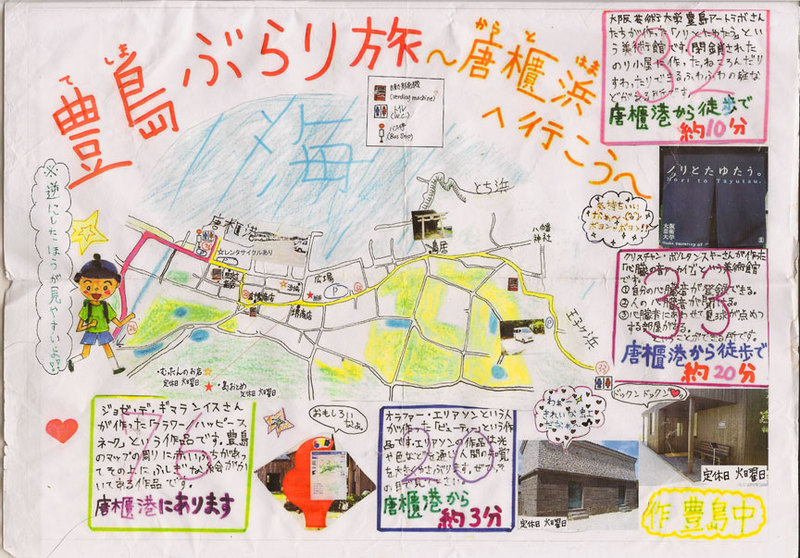 豊島ぶらり旅～唐櫃浜へ行こうへ
てしま
からと
はま
海
自動販売機
(vending machine)
トイレ
(W.C.)
バス停
(Bus Stop)
大阪芸術大学豊島アートラボさん
たちが作った「ノリとたゆたう」と
いう美術館です。閉鎖された
のり小屋で作った、ねころんだり
すわったりできるふわふわの
32
唐櫃港から徒歩で
約10分
ノリとたゆたう。
Nori to Tayutau.
大阪
芸術
大学
気持ちいい
かぁ～
ボヨン・ボヨン!!
※逆にしたほうが見やすいよ!!
とち浜
唐櫃港
☆レンタサイクルあり
広場
鳥居
八幡
神社
王子ヶ浜
P
26
33
・むぁんのお店☆
定休日 火曜日
・島おとめ★
定休日 火曜日
クリスチャン・ボルタンスキーさんが作った
「心臓の音のアーカイブ」という美術館
です。
①自分の心臓音が登録できる。
②人の心臓音が聞ける。
③心臓音にあわせて豆球が点めつ
する部屋がある。
ということができる所です。
33
唐櫃港から徒歩で
約20分
ドックンドックン
定休日 火曜日
ジョゼ・デ・ギマランイスさん
が作った「フラワーハッピース
ネーク」という作品です。豊島
のマップの周りに赤いふちがあっ
てその上にふしぎな絵がか
いてある作品です。
26
唐櫃港にあります
おもしろい
なぁ
オラファー・エリアソンという人
が作った「ビューティー」という作
品です。エリアソンの作品は光
や色などを通じ人間の知覚
を大きくゆさぶります。ぜひ
の目で見て下さい!
唐櫃港から
約3分
わぁ～
きれいな虹
だなぁ
定休日 火曜日
作 豊島中